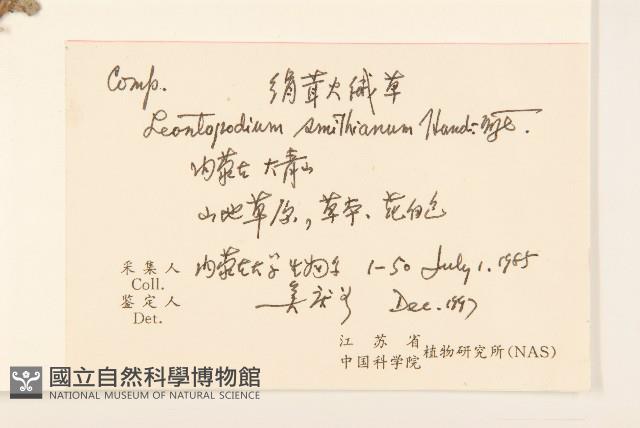 Comp. 绢茸火绒草
Leontopodium smithianum Hand.-Mzt.
内蒙古 大青山
山地草原，草本、花白色
采集人 内蒙古大学生物系 1-50 July 1. 1985
Coll.
鉴定人 吴 Dec. 1997
Det.
江苏省
中国科学院 植物研究所(NAS)
國立自然科學博物館
NATIONAL MUSEUM OF NATURAL SCIENCE